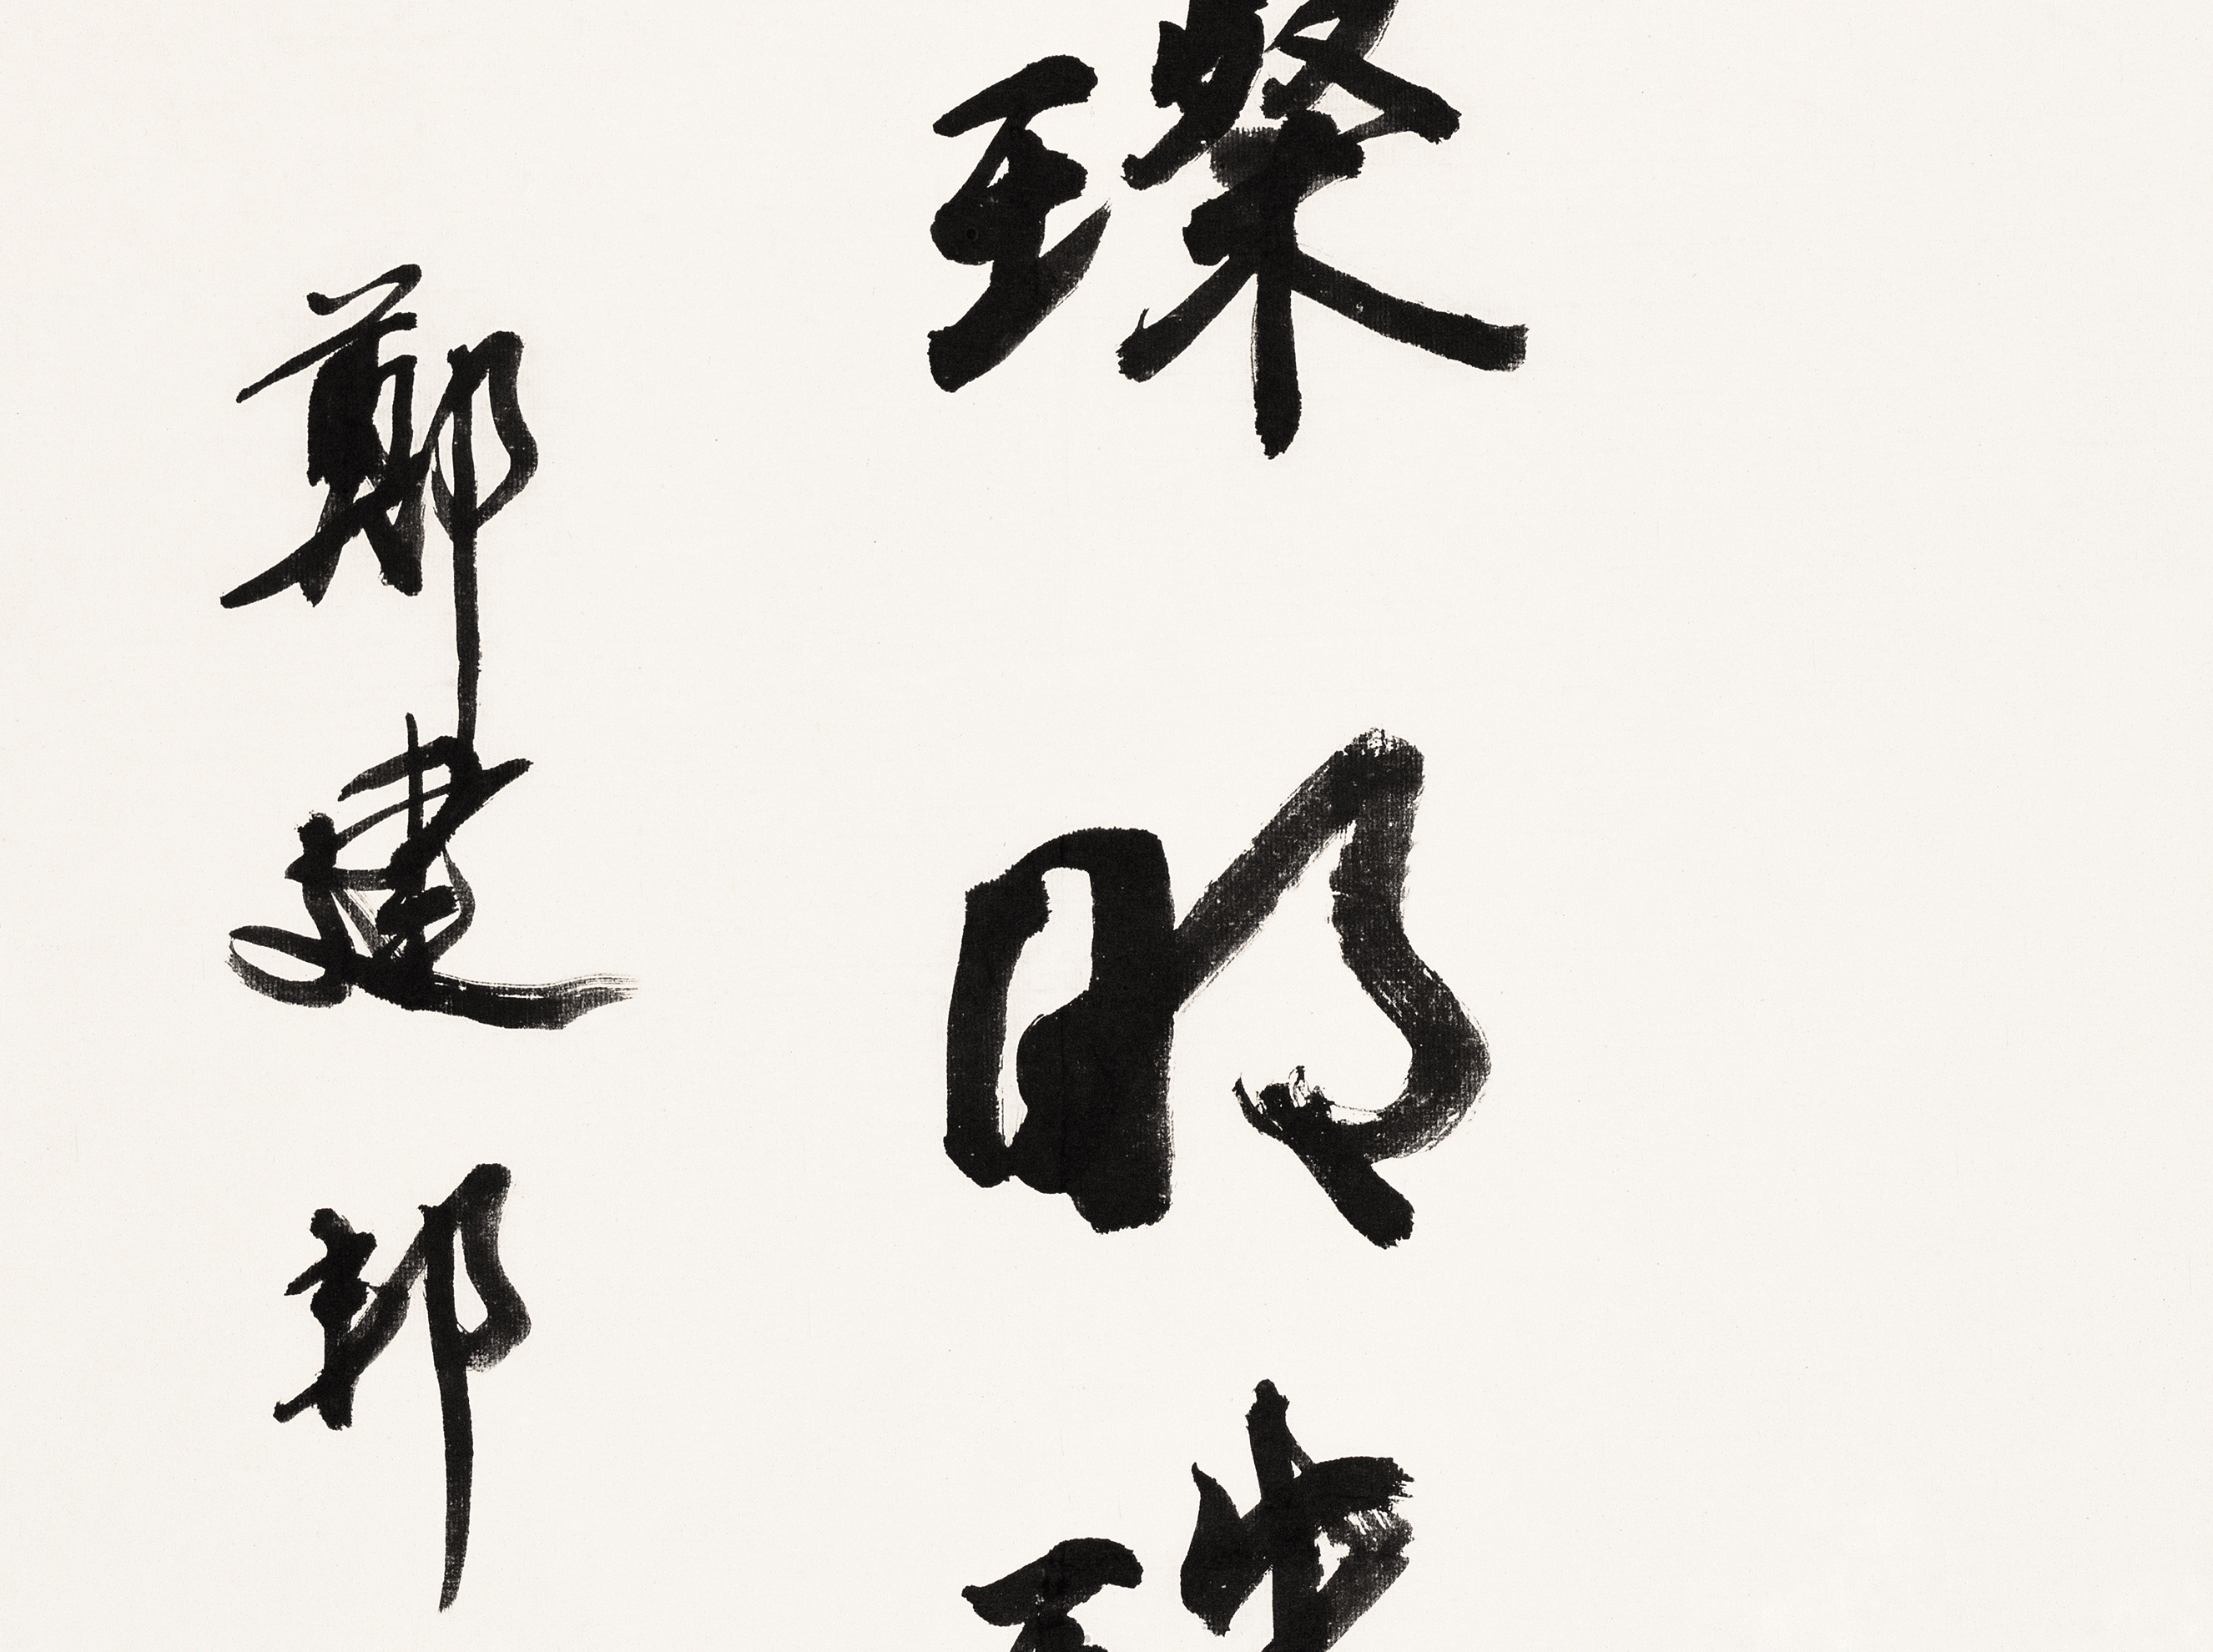 璨明珠
鄭建邦